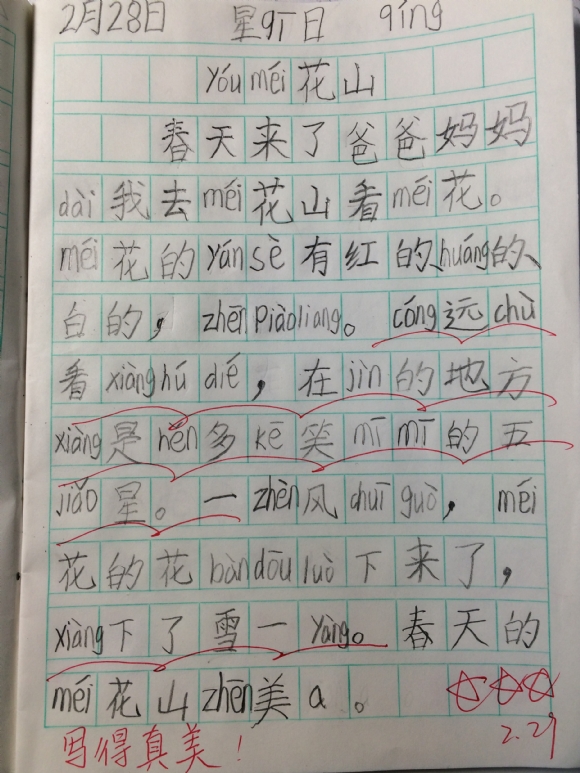 2月28日 星qī日 qíng
Yóu méi 花山
春天来了爸爸妈妈
dài 我去 méi 花山看 méi 花。
méi 花的 Yán sè 有红的、huáng 的、
白的，zhēn Piàoliang。cóng 远 chù
看 xiàng hú dié，在 jìn 的地方
xiàng 是 hěn 多 kē 笑 mī mī 的五
jiǎo 星。一 zhèn 风 chuī guò，méi
花的花 bàn dōu luò 下来了，
xiàng 下了雪一 Yàng。春天的
méi 花山 zhēn 美 a。
2.29
写得真美！